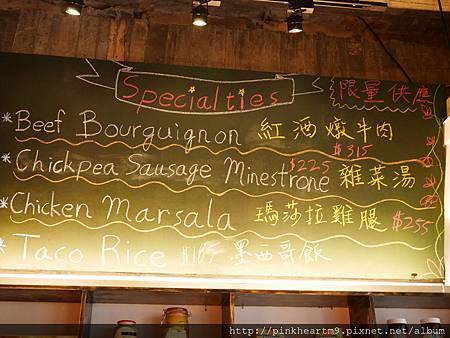 Specialties
限量供應
*Beef Bourguignon 紅酒燉牛肉
$315
*Chickpea Sausage Minestrone 雜菜湯
$225
*Chicken Marsala 瑪莎拉雞腿 $255
*Taco Rice 墨西哥飯
http://pinkheartm9.pixnet.net/album